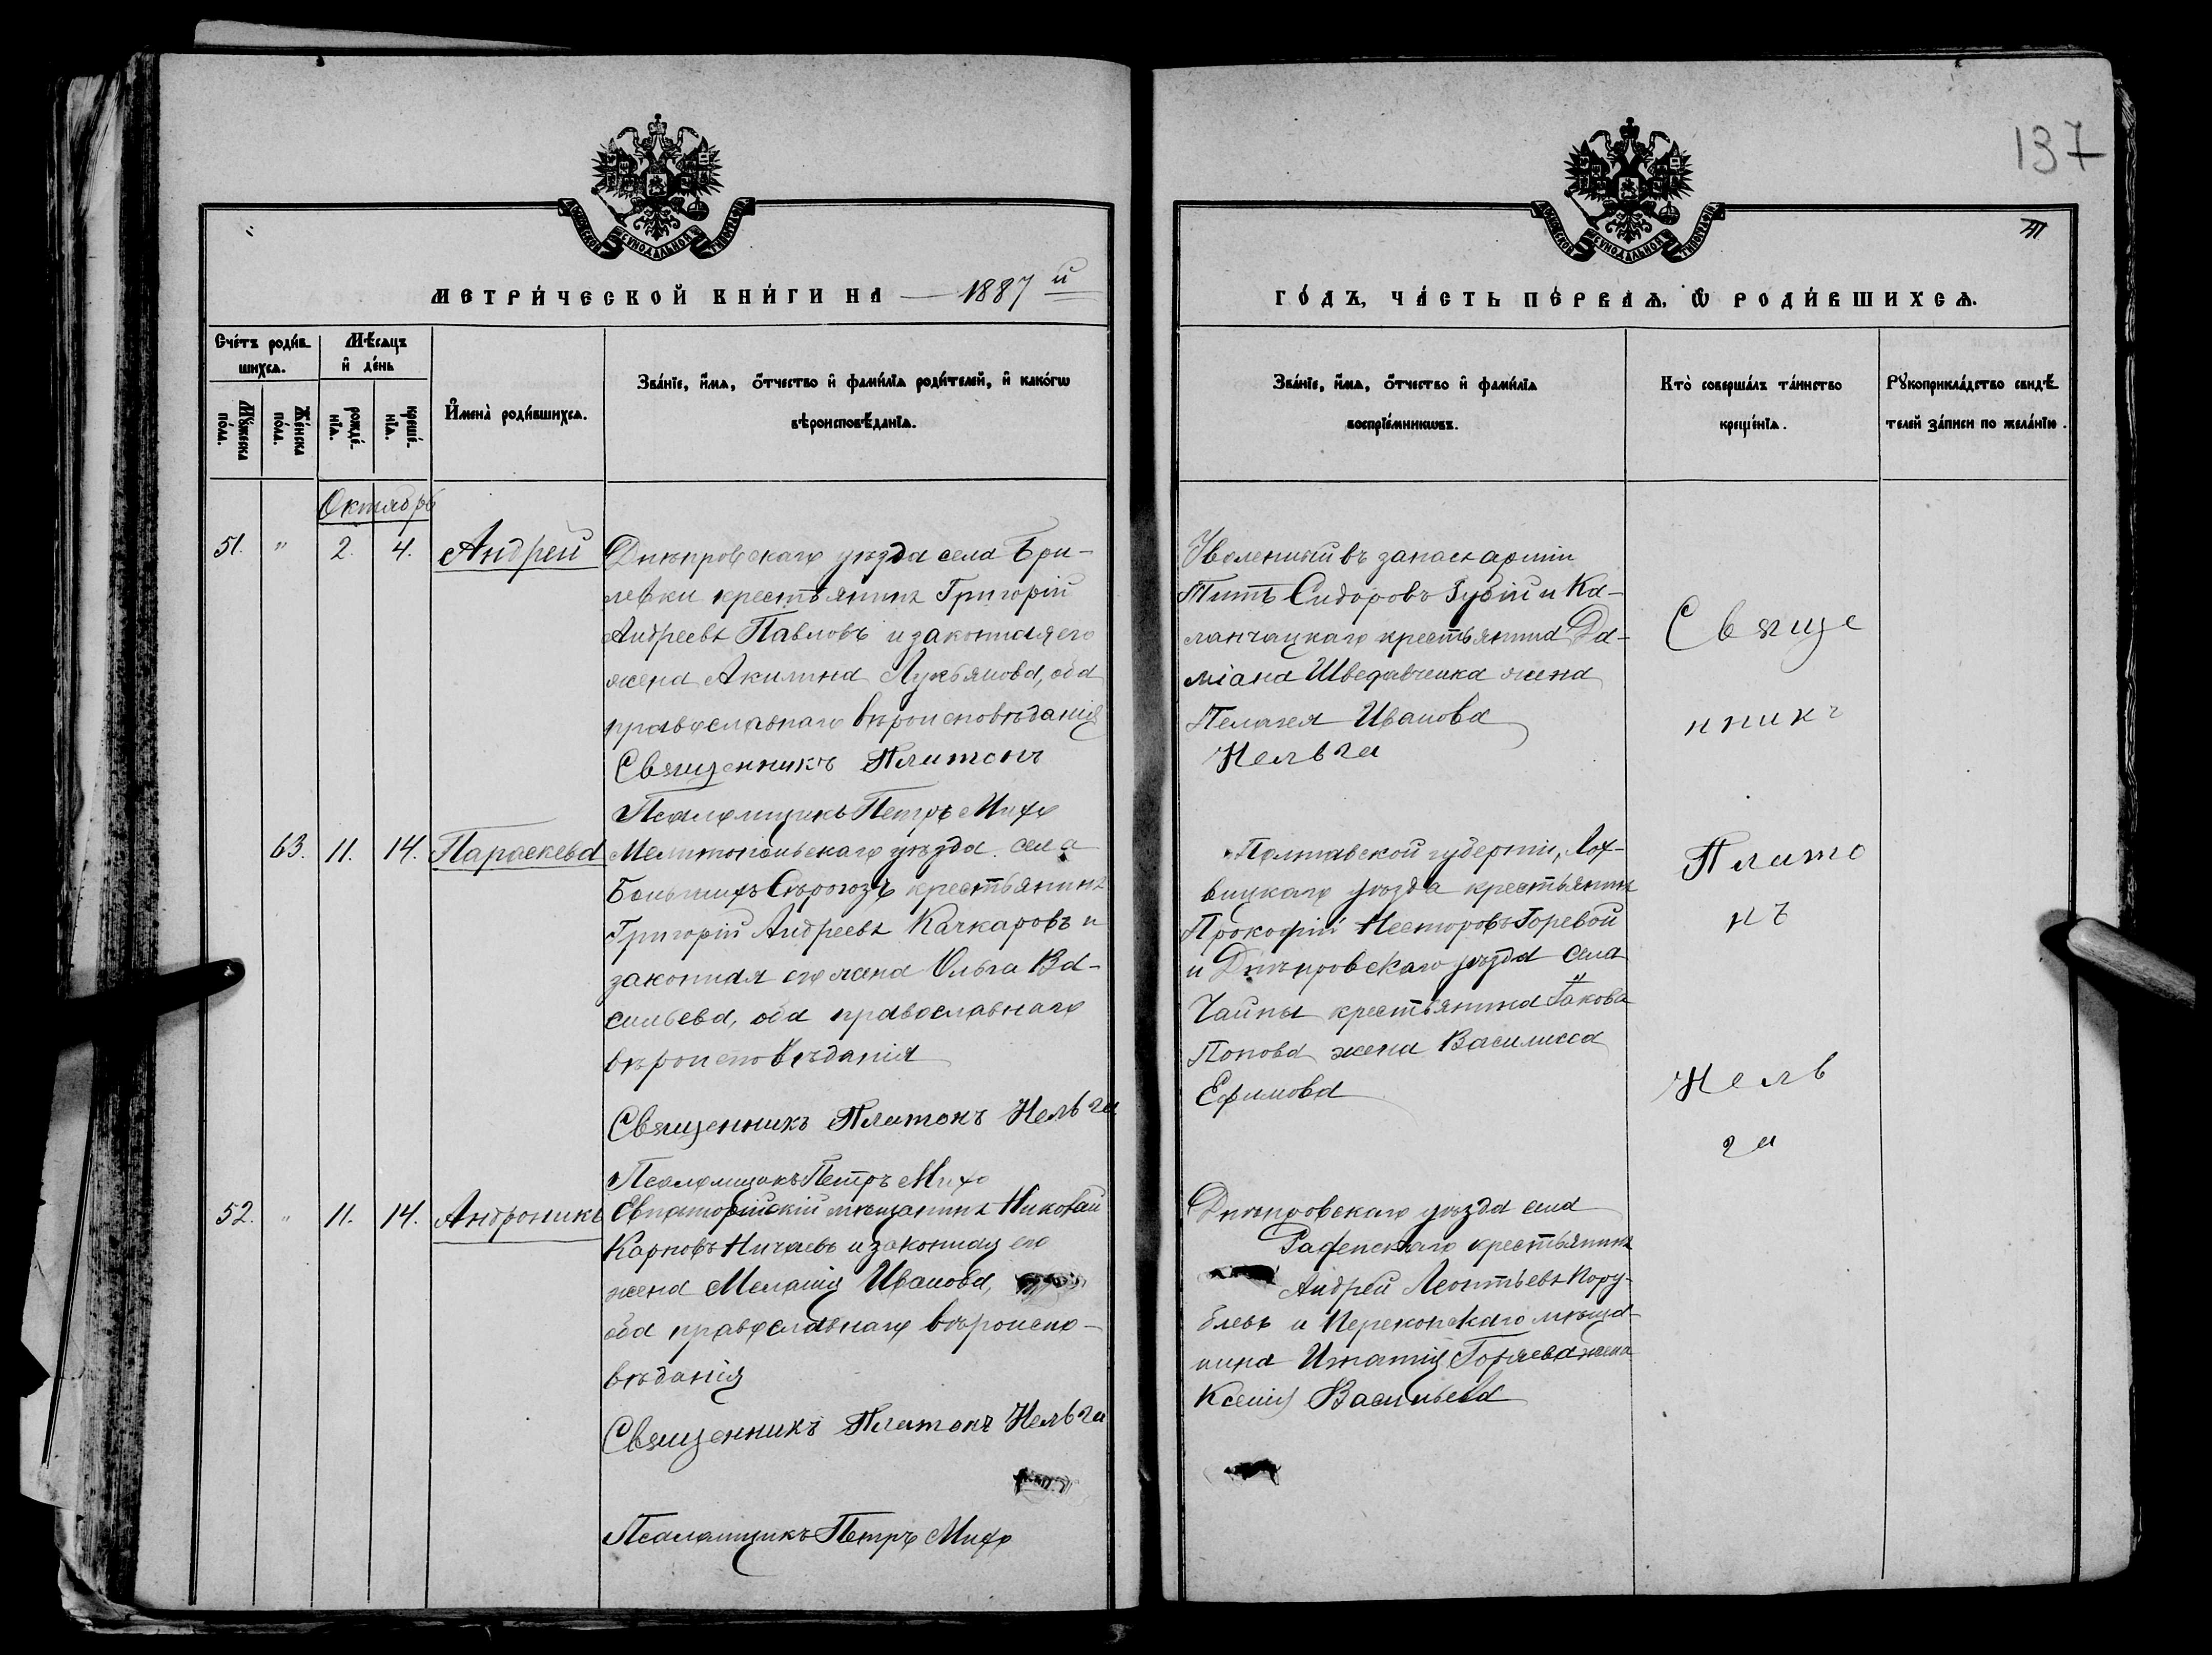 137
МЕТРИ́ЧЕСКОЙ КНИ́ГИ НА — 1887 й
ГО́ДЪ, ЧА́СТЬ ПЕ́РВАѦ, Ѽ РОДИ́ВШИХСѦ.
Сче́тъ роди́вшихсѧ.
Мѣ́сѧцъ и҆ де́нь
Мꙋ́жеска по́ла.
Же́нска по́ла.
рожде́нїѧ.
креще́нїѧ.
И҆мена̀ роди́вшихсѧ.
Зва́нїе, и҆́мѧ, ѻ҆́тчество и҆ фами́лїѧ роди́телей, и҆ како́гѡ
вѣроисповѣ́данїѧ.
Зва́нїе, и҆́мѧ, ѻ҆́тчество и҆ фами́лїѧ
воспрїе́мникѡвъ.
Кто̀ соверша́лъ та́инство
креще́нїѧ.
Рꙋкоприкла́дство свидѣ́
телей за́писи по жела́нїю.
Октябрь
51. " 2. 4. Андрей
Днѣпровскаго уѣзда села Бри-
левки крестьянинъ Григорій
Андреевъ Павловъ и законная его
жена Акилина Лукьянова, оба
православнаго вѣроисповѣданія
Священникъ Платонъ
Нельга
Псаломщикъ Петръ Михо
Уволенный въ запасъ арміи
Титъ Сидоровъ Губій и Ка-
ланчацкаго крестьянина Да-
міана Шведавченка жена
Пелагея Иванова
Свяще
нникъ
Плато
нъ
Нель
га
63. 11. 14. Параскева
Мелитопольскаго уѣзда села
Большихъ Сѣрогозъ крестьянинъ
Григорій Андреевъ Качкаровъ и
законная его жена Ольга Ва-
сильева, оба православнаго
вѣроисповѣданія
Священникъ Платонъ Нельга
Псаломщикъ Петръ Михо
Полтавской губерніи, Лох-
вицкаго уѣзда крестьянинъ
Прокофій Несторовъ Горевой
и Днѣпровскаго уѣзда села
Чалны крестьянина Іакова
Попова жена Василисса
Ефимова
52. " 11. 14. Андроникъ
Евпаторійскій мѣщанинъ Николай
Карповъ Ничаевъ и законная его
жена Меланія Иванова,
оба православнаго вѣроиспо-
вѣданія
Священникъ Платонъ Нельга
Псаломщикъ Петръ Михо
Днѣпровскаго уѣзда села
крестьянинъ
Андрей Леонтьевъ Кору-
блевъ и Перекопскаго мѣща-
нина Игнатія Горяева жена
Ксенія Васильева